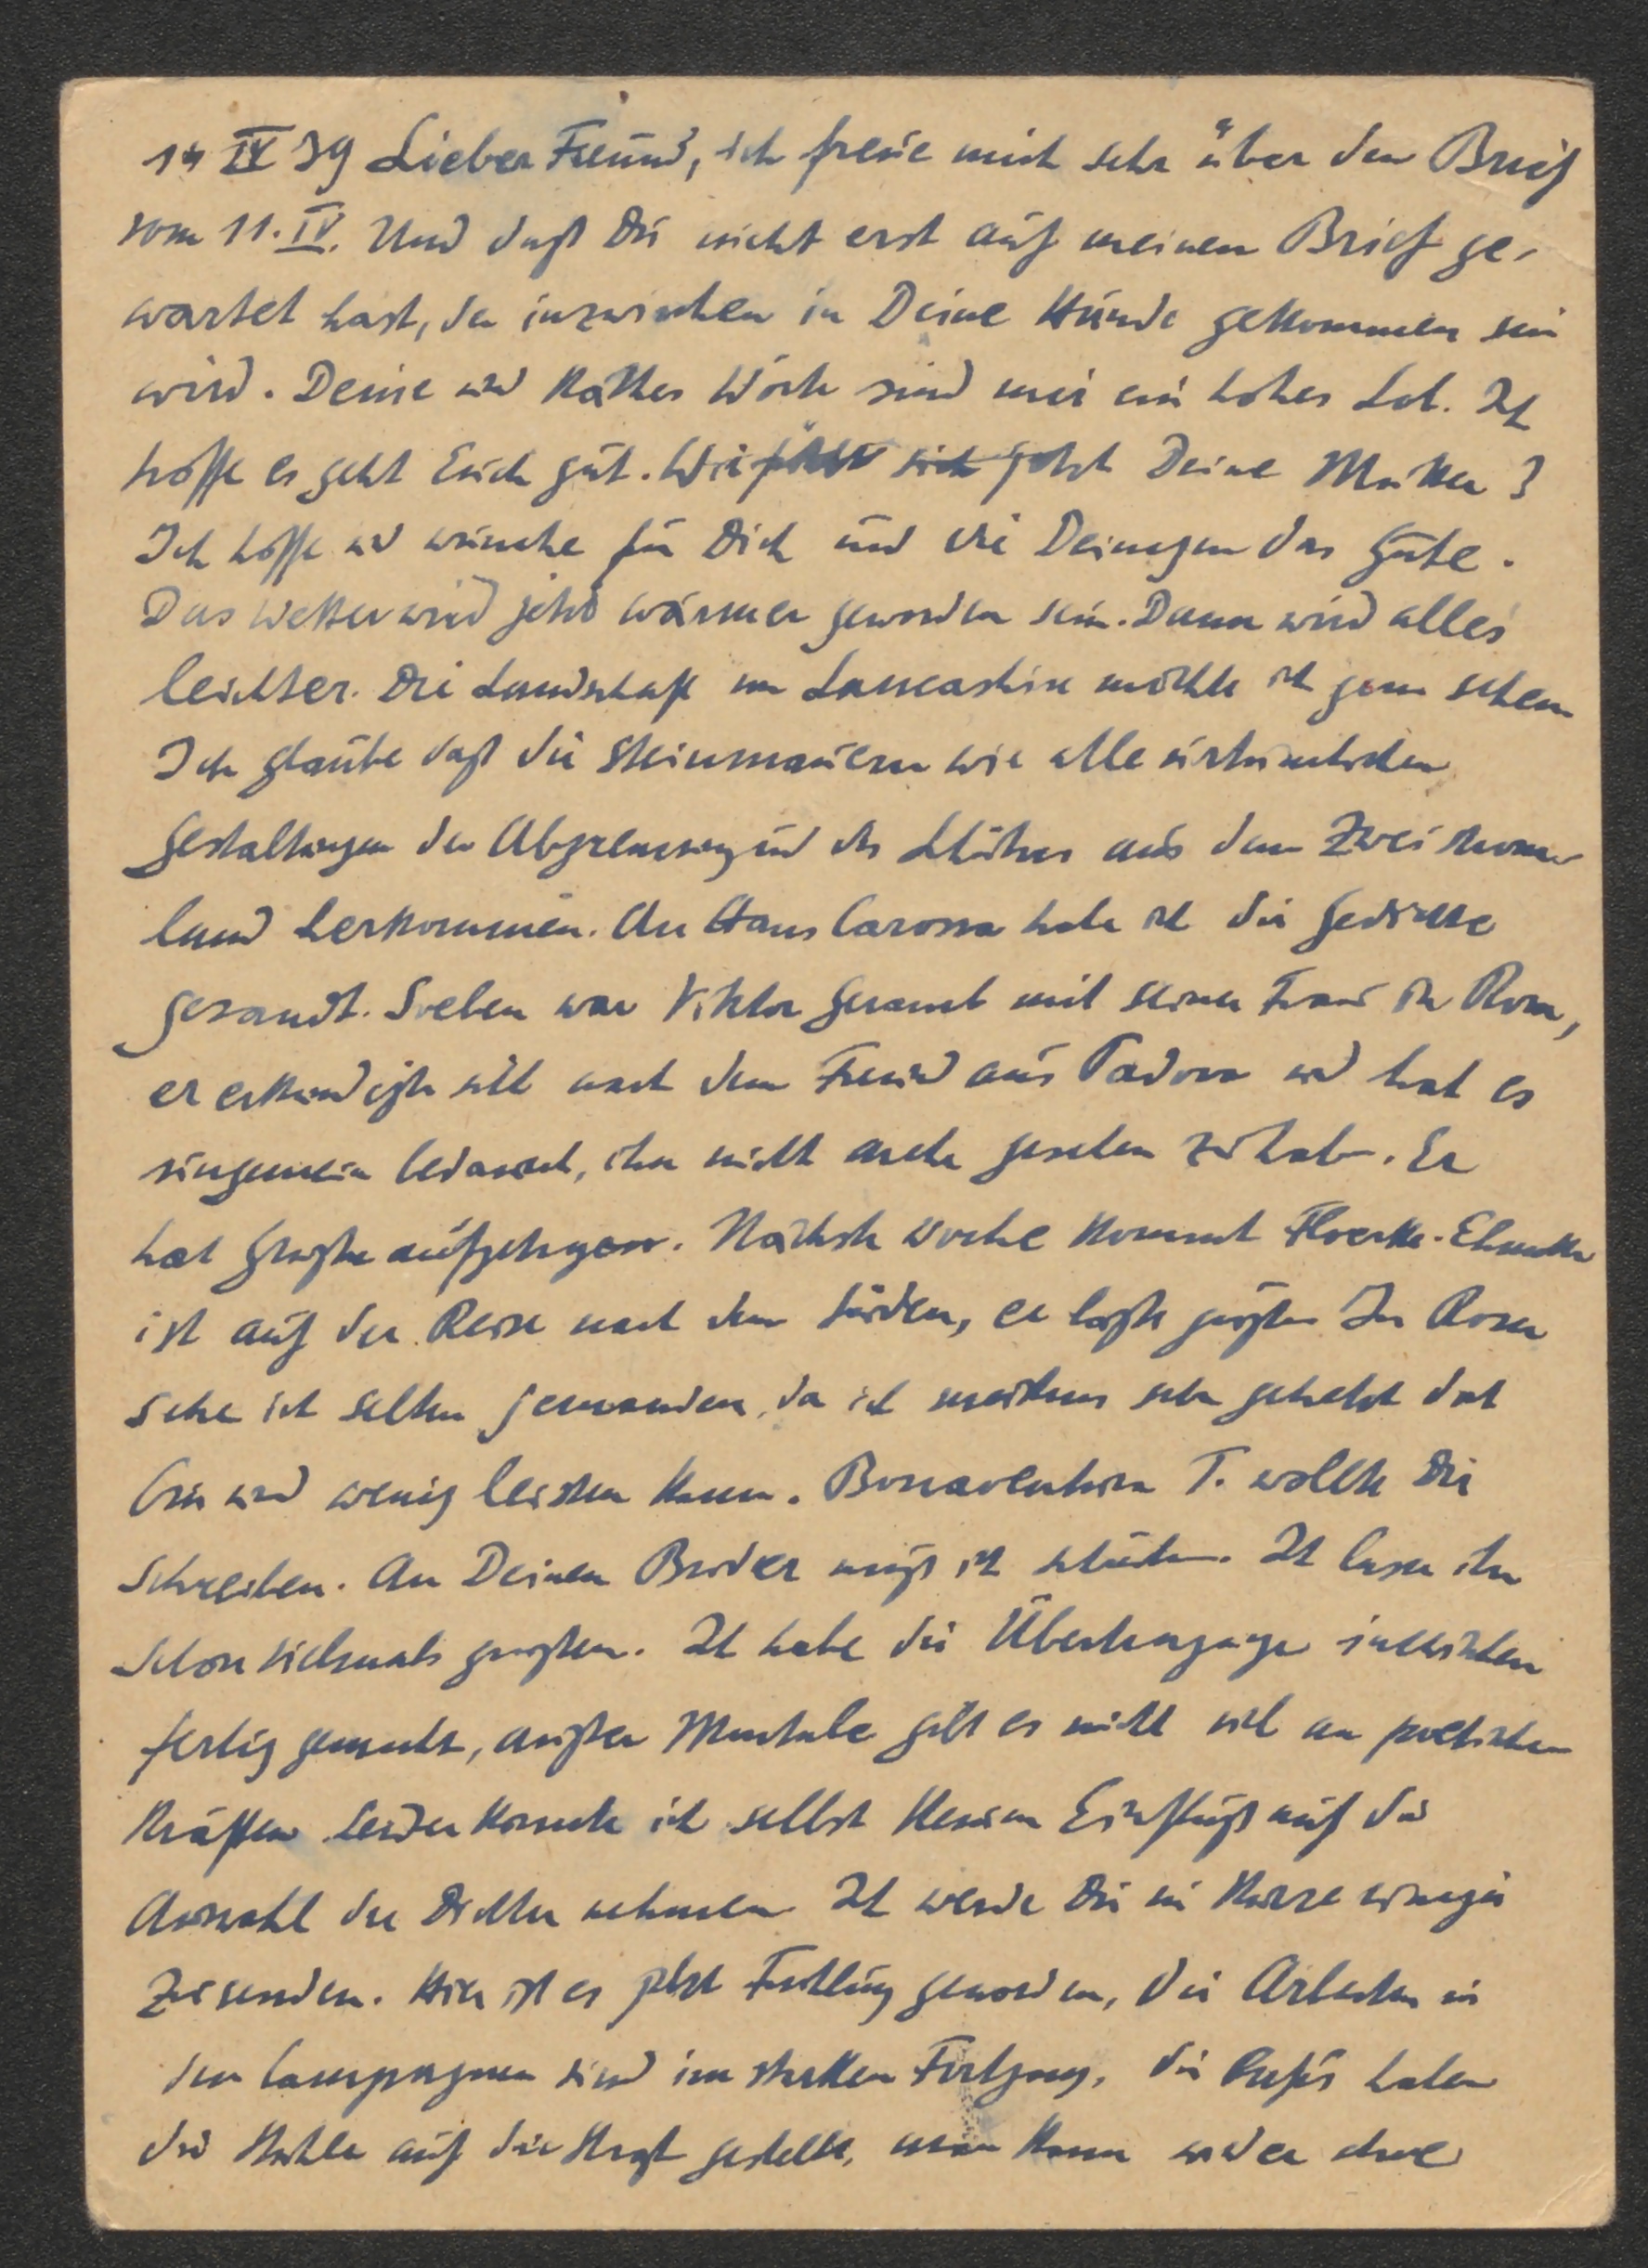 14 IV 39 Lieber Freund, ich freue mich sehr über den Brief
vom 11. IV. Und daß Du nicht erst auf meinen Brief ge-
wartet hast, der inzwischen in Deine Hände gekommen sein
wird. Deine und Käthes Worte sind mir ein hohes Lob. Ich
hoffe es geht Euch gut. Wie jetzt Deine Mutter?
Ich hoffe und wünsche für Dich und die Deinigen das Gute.
Das Wetter wird jetzt wärmer geworden sein. Dann wird alles
leichter. Die Landschaft von Lancashire möchte ich gern sehen
Ich glaube daß die Steinmauern wie alle
Gestaltungen der Abgrenzung und des Schutzes aus dem Zweistrom-
land herkommen. An Hans Carossa habe ich die Gedichte
gesandt. Soeben war Viktor mit seiner Frau in Rom,
er erkundigte sich nach dem Freund aus Padova und hat es
ungemein bedauert, ihn nicht mehr gesehen zu haben. Er
hat Grüße aufgetragen. Nächste Woche kommt Floerke. Ehmcke
ist auf der Reise nach dem Süden, er läßt grüßen In Rom
sehe ich selten jemanden, da ich meistens sehr gehetzt dort
bin und wenig leisten kann. Bonaventura T. wollte Dir
schreiben. An Deinen Bruder muß ich schreiben. Ich lasse ihn
schon vielmals grüßen. Ich habe die Übertragungen inzwischen
fertig gemacht, außer Montale gibt es nicht viel an poetischen
Kräften leider konnte ich selbst keinen Einfluß auf die
Auswahl der Dichter nehmen Ich werde Dir in Kürze einiges
zusenden. Hier ist es jetzt Frühling geworden, die Arbeiten in
den Campagnen sind im starken Fortgang, die haben
die Stühle auf die gestellt, man kann wieder ohne